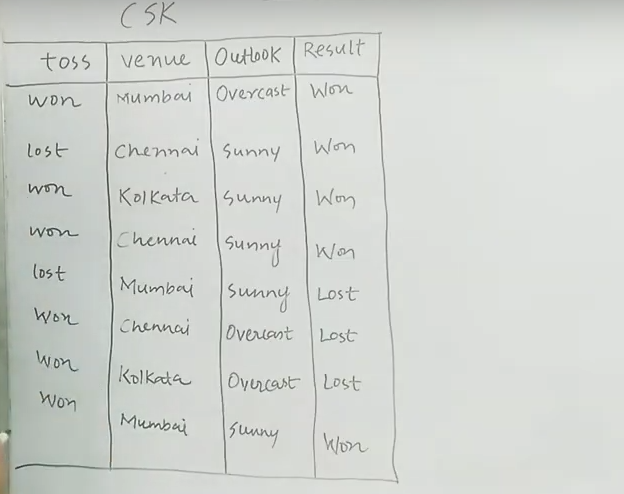 CSK
toss venue Outlook Result
won Mumbai Overcast Won
lost Chennai Sunny Won
won Kolkata Sunny Won
won Chennai Sunny Won
lost Mumbai Sunny Lost
Won Chennai Overcast Lost
Won Kolkata Overcast Lost
Won Mumbai Sunny Won